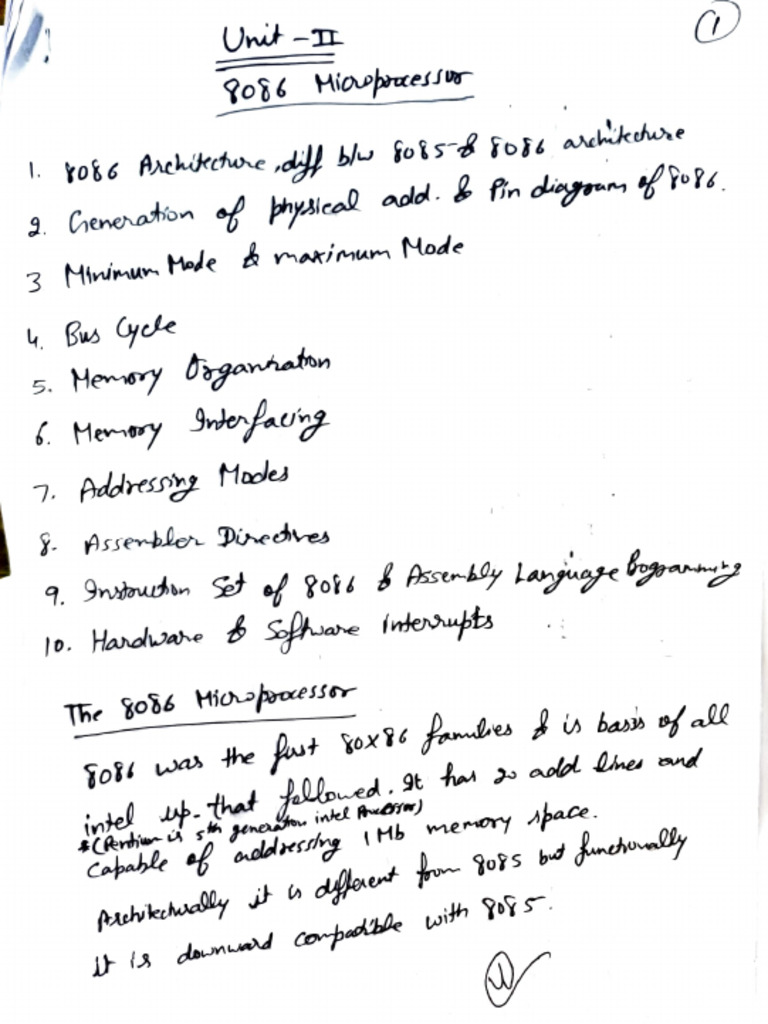 1
Unit - II
8086 Microprocessor
1. 8086 Architecture, diff b/w 8085 & 8086 architecture
2. Generation of physical add. & Pin diagram of 8086.
3 Minimum Mode & maximum Mode
4. Bus Cycle
5. Memory Organization
6. Memory Interfacing
7. Addressing Modes
8. Assembler Directives
9. Instruction Set of 8086 & Assembly Language Programming
10. Hardware & Software interrupts
The 8086 Microprocessor
8086 was the first 80X86 families & is basis of all
intel up. that followed. It has 20 add lines and
*(Pentium is 5th generation intel Processor)
Capable of addressing 1 Mb memory space.
Architecturally it is different from 8085 but functionally
it is downward compadible with 8085.